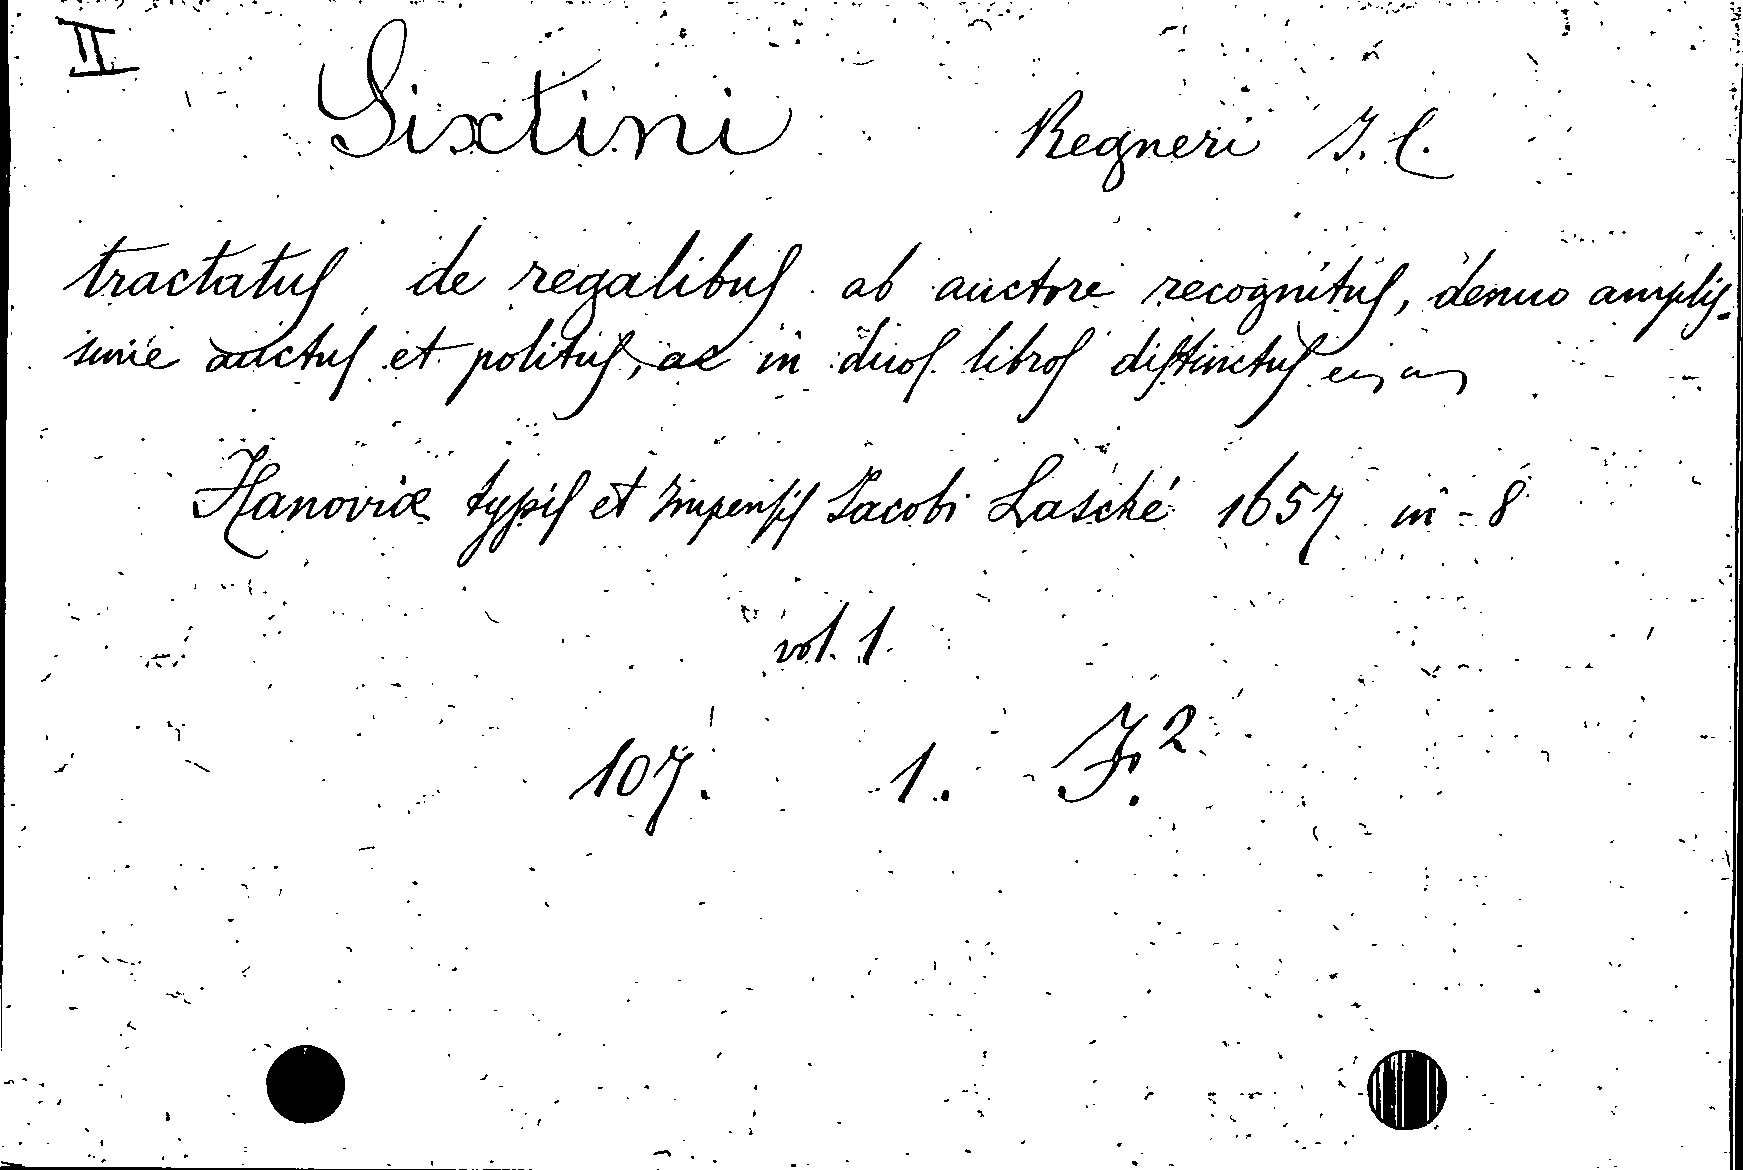 II
Sixtini Regneri J. C.
tractatus de regalibus ab auctore recognitus, denuo amplis-
sime auctus et politus, ac in duos libros distinctus
Hanoviæ typis et Impensis Jacobi Lasché 1657 in-8
vol. 1.
107. 1. F.²